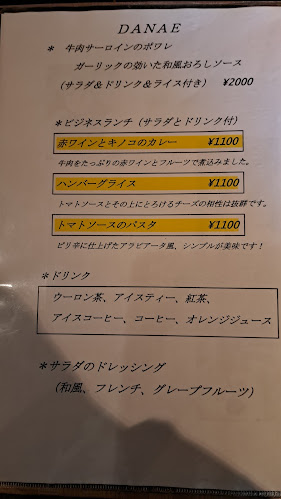 DANAE
* 牛肉サーロインのポワレ
ガーリックの効いた和風おろしソース
(サラダ&ドリンク&ライス付き) ¥2000
*ビジネスランチ (サラダとドリンク付)
赤ワインとキノコのカレー ¥1100
牛肉をたっぷりの赤ワインとフルーツで煮込みました。
ハンバーグライス ¥1100
トマトソースとその上にとろけるチーズの相性は抜群です。
トマトソースのパスタ ¥1100
ピリ辛に仕上げたアラビアータ風、シンプルが美味です!
*ドリンク
ウーロン茶、アイスティー、紅茶、
アイスコーヒー、コーヒー、オレンジジュース
*サラダのドレッシング
(和風、フレンチ、グレープフルーツ)